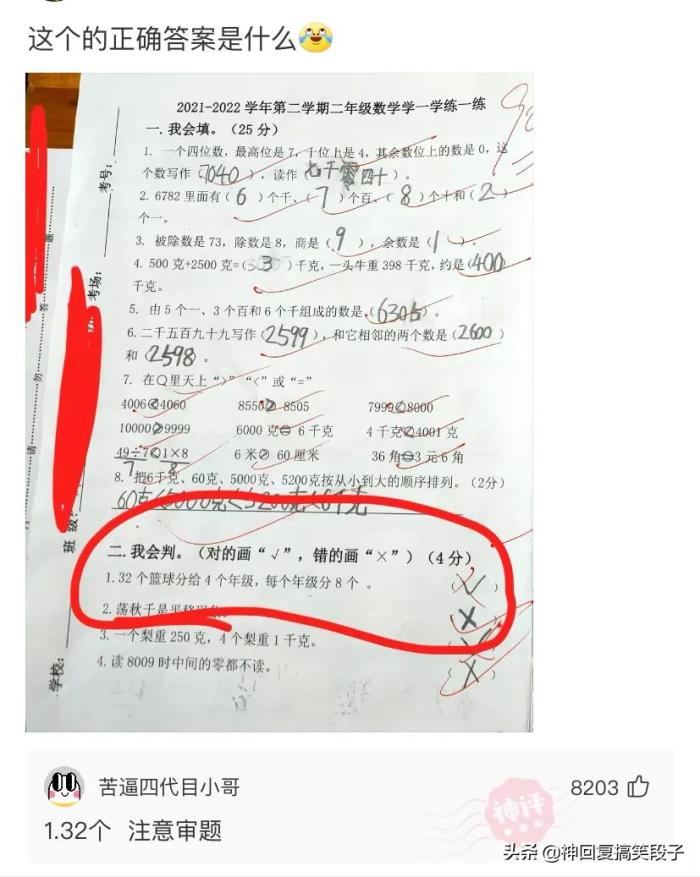 这个的正确答案是什么
2021-2022 学年第二学期二年级数学学一学练一练
一. 我会填。（25 分）
1. 一个四位数，最高位是 7，十位上是 4，其余数位上的数是 0，这
个数写作（7040），读作（七千零四十）。
2. 6782 里面有（6）个千、（7）个百、（8）个十和（2）
个一。
3. 被除数是 73，除数是 8，商是（9），余数是（1）。
4. 500 克+2500 克=（3）千克，一头牛重 398 千克，约是（400）
千克。
5. 由 5 个一、3 个百和 6 个千组成的数是（6305）。
6. 二千五百九十九写作（2599），和它相邻的两个数是（2600）
和（2598）。
7. 在○里天上“>”“<”或“=”
4006<4060 8550>8505 7999<8000
10000>9999 6000 克=6 千克 4 千克<4001 克
49÷7<1×8 6 米>60 厘米 36 角=3 元 6 角
7 8
8. 把6千克、60克、5000克、5200克按从小到大的顺序排列。（2分）
60克<5000克<5200克<6千克
二. 我会判。（对的画“√”，错的画“×”）（4 分）
1.32 个篮球分给 4 个年级，每个年级分 8 个 。（√）
2. 荡秋千是平移现象。（×）
3. 一个梨重 250 克，4 个梨重 1 千克。
4. 读 8009 时中间的零都不读。（×）
考号：
考场：
班级
学校：
题
答
勿
请
苦逼四代目小哥 8203
1.32个 注意审题
神评
头条 @神回复搞笑段子